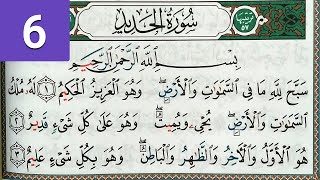 6
سُورَةُ الْحَدِيدِ
بِسْمِ اللَّهِ الرَّحْمَٰنِ الرَّحِيمِ
سَبَّحَ لِلَّهِ مَا فِي السَّمَٰوَٰتِ وَالْأَرْضِ ۖ وَهُوَ الْعَزِيزُ الْحَكِيمُ ﴿١﴾ لَهُ مُلْكُ
السَّمَٰوَٰتِ وَالْأَرْضِ ۖ يُحْيِي وَيُمِيتُ ۖ وَهُوَ عَلَىٰ كُلِّ شَيْءٍ قَدِيرٌ ﴿٢﴾
هُوَ الْأَوَّلُ وَالْآخِرُ وَالظَّاهِرُ وَالْبَاطِنُ ۖ وَهُوَ بِكُلِّ شَيْءٍ عَلِيمٌ ﴿٣﴾